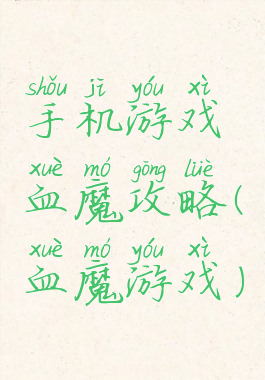 shǒu jī yóu xì
手机游戏
xuè mó gōng lüè
血魔攻略(
xuè mó yóu xì
血魔游戏)